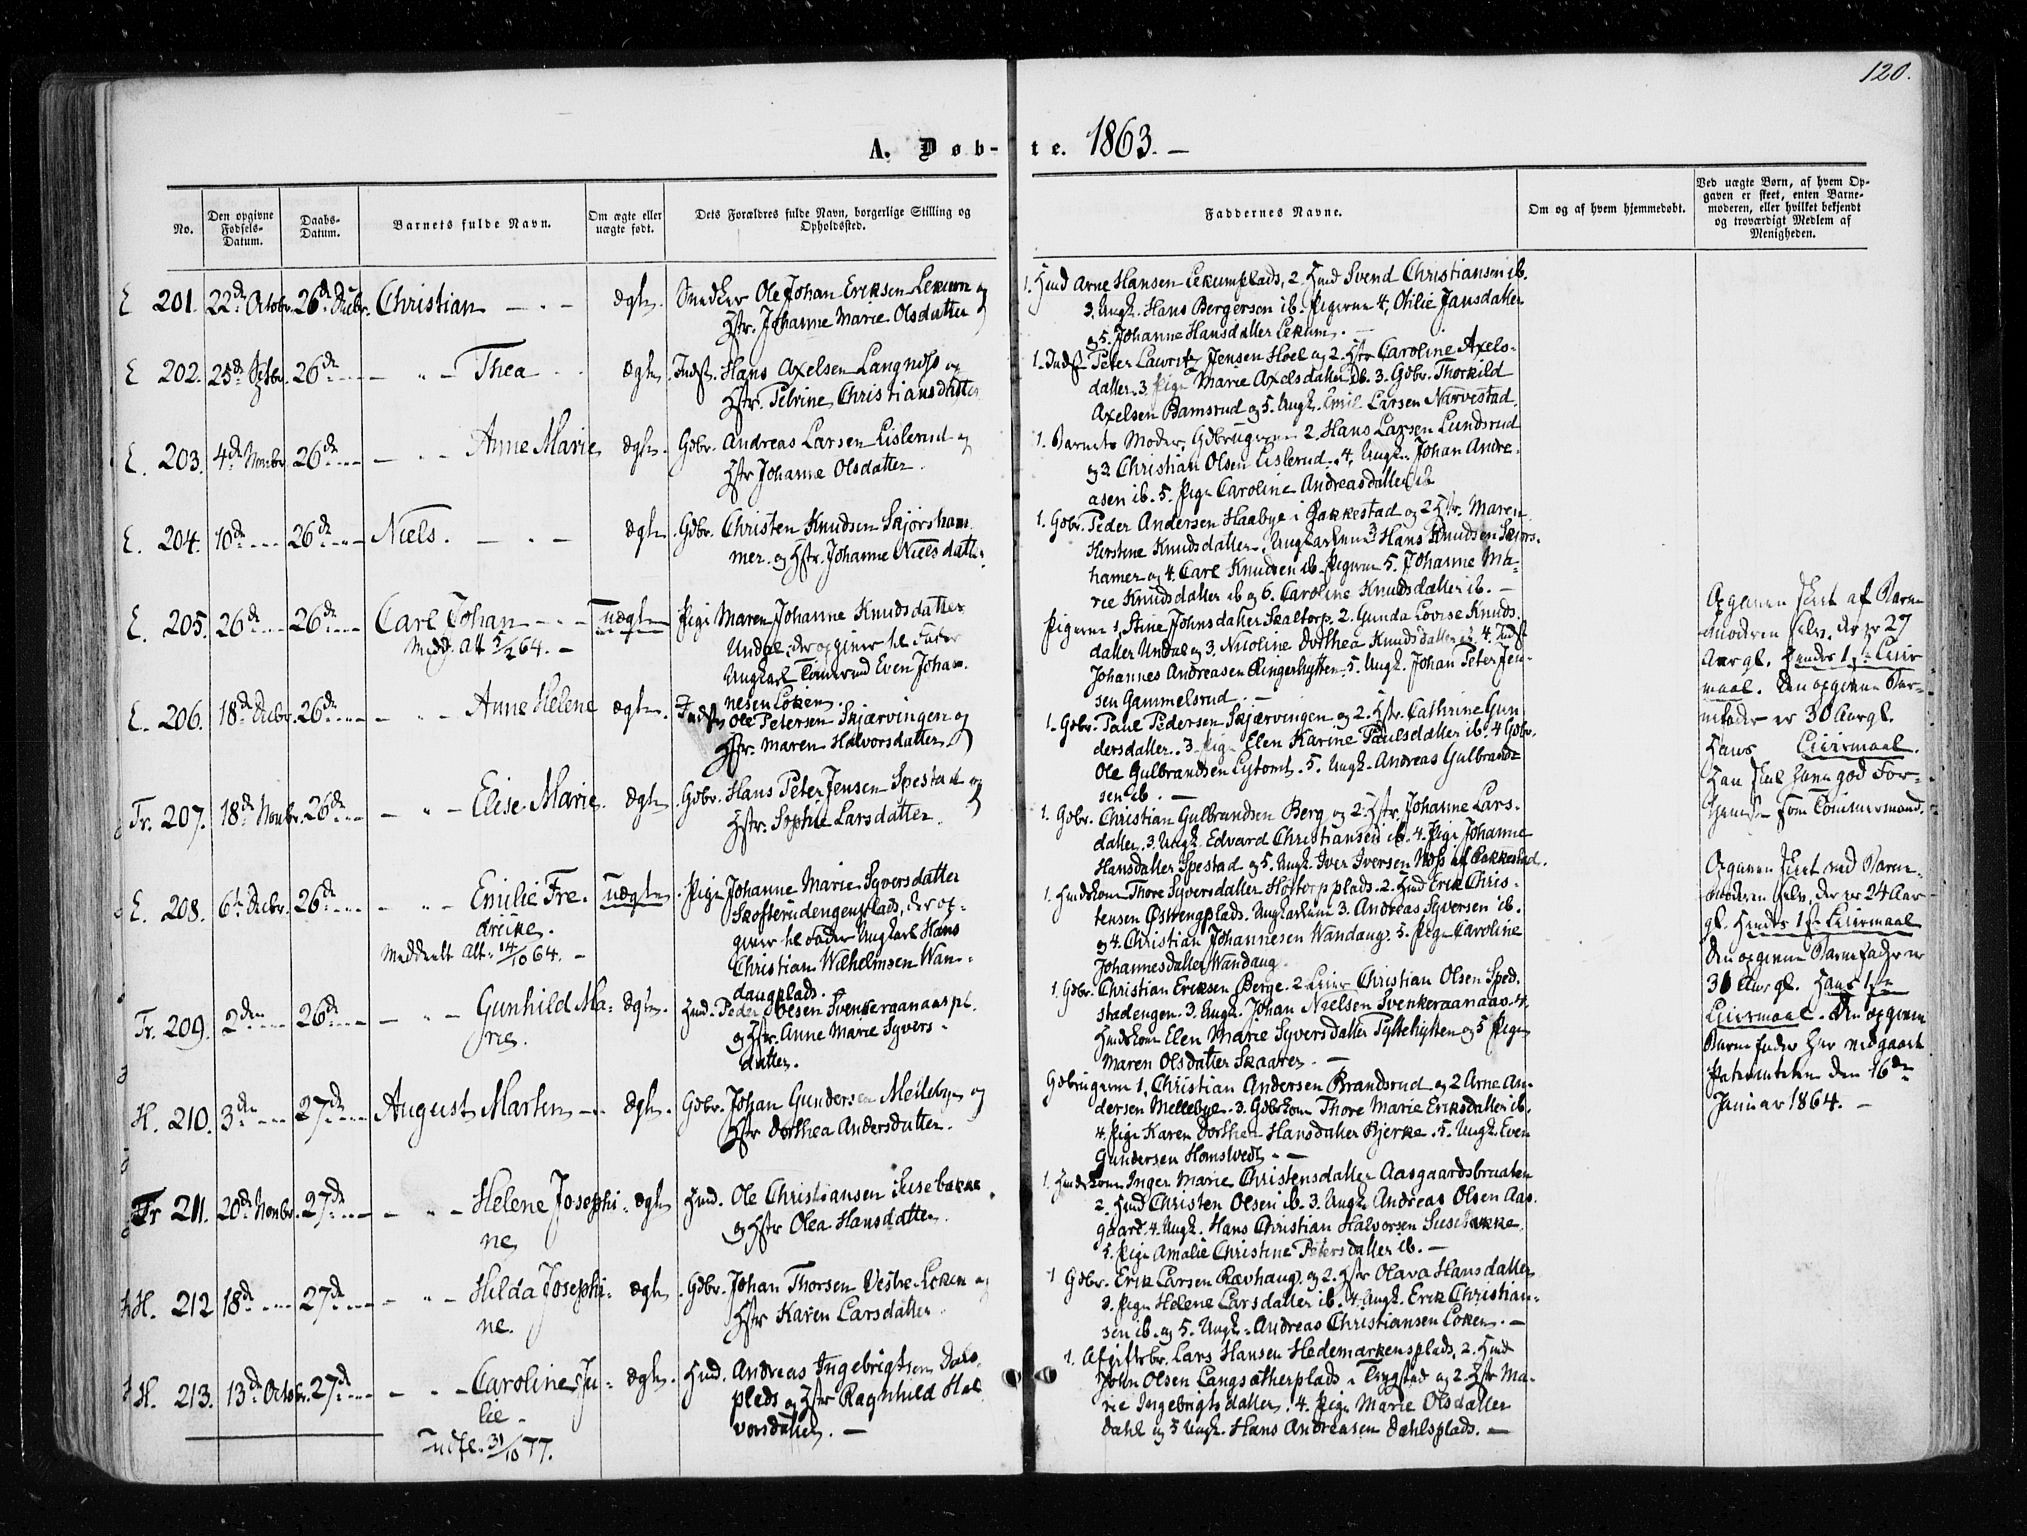 120.
A. Døb-te. 1863. —
No.
Den opgivne Fødsels-Datum.
Daabs-Datum.
Barnets fulde Navn.
Om ægte eller uægte født.
Dets Forældres fulde Navn, borgerlige Stilling og Opholdssted.
Faddernes Navne.
Om og af hvem hjemmedøbt.
Ved uægte Børn, af hvem Opgaven er skeet, enten Barnemoderen, eller hvilket bekjendt og troværdigt Medlem af Menigheden.
E 201. 22de Octobr. 26de Decbr. Christian — . — ægte. Snedker Ole Johan Eriksen Lekum og
Hstr. Johanne Marie Olsdatter
1. Hmd Arne Hansen Lekumplads, 2. Hmd Svend Christiansen ib.
3. Ungk. Hans Bergersen ib. Pigerne 4. Otilie Jansdatter
og 5. Johanne Hansdatter Lekum. —
E 202. 25de 26de — " — Thea ægte. Indst. Hans Axelsen Langnæs og
Hstr. Petrine Christiansdatter
1. Indst Peter Laurits Jensen Hoel og 2. Hstr Caroline Axels-
datter. 3 Pige Marie Axelsdatter ib. 3. Gdbr. Thorkild
Axelsen Bamsrud og 5. Ungk. Emil Larsen Narvestad.
E. 203. 4de Novbr. 26de — " — Anne Marie ægte. Gdbr. Andreas Larsen Lislerud og
Hstr Johanne Olsdatter.
1. Barnets Moder, Gdbrugerne 2. Hans Larsen Lundsrud
og 3. Christian Olsen Lislerud. 4. Ungk. Johan Andre-
asen ib. 5. Pige Caroline Andreasdatter ib
E. 204. 10de 26de Niels. — . — ægte Gdbr. Christen Knudsen Skjørsham
mer. og Hstr. Johanne Nielsdatter.
1. Gdbr. Peder Andersen Haabye i Rakkestad og 2 Hstr. Maren
Kerstine Knudsdatter. Ungkarlene 3 Hans Knudsen Skjørs-
hamer og 4. Carl Knudsen ib. Pigerne 5. Johanne Ma-
rie Knudsdatter ib og 6. Caroline Knudsdatter ib. —
E. 205. 26de 26de Carl Johan — . — uægte Pige Maren Johanne Knudsdatter
Medd. att. 5/2 64. —
Undal, der opgiver til Fader
Ungkarl Tømrmd Even Johan-
nesen Løken
Pigerne 1. Stine Johnsdatter Skaltorp, 2. Gunda Lovise Knuds-
datter Undal og 3. Nicoline Dorthea Knudsdatter ib. 4. Indst
Johannes Andreasen Ringerhytten. 5. Ungk. Johan Peter Jen-
sen Gammelsrud. —
Opgaven skeet af Barne
moderen selv, der er 27
Aar gl. hendes 1ste Leier
maal. Den opgivne Bar-
nefader er 30 Aar gl.
Hans Leiermaal.
Han skal have god For-
tjeneste som Tømmermand.
E. 206. 18de Decbr. 26de — " — Anne Helene ægte. Indst Ole Petersen Skjærvingen og
Hstr. Maren Halvorsdatter
1. Gdbr. Paul Pedersen Skjærvingen og 2. Hstr. Cathrine Gun
dersdatter. 3. Pige Elen Karine Paulsdatter ib. 4 Gdbr.
Ole Gulbrandsen Lytomt. 5. Ungk. Andreas Gulbrand-
sen ib. —
Tr. 207. 18de Novbr. 26de — " — Elise Marie. ægte Gdbr. Hans Peter Jensen Spestad og
Hstr. Sophie Larsdatter.
1. Gdbr. Christian Gulbrandsen Berg og 2. Hstr. Johanne Lars-
datter. 3. Ungk. Edvard Christiansen ib. 4. Pige Johanne
Hansdatter Spestad og 5. Ungk. Iver Iversen Næss af Rakkestad.
E. 208. 6te Decbr. 26de — " — Emilie Fre- uægte. Pige Johanne Marie Syversdatter
drikke.
Meddeelt Att. 14/10 64. —
Skofterudengenplads, der op-
giver til Fader Ungkarl Hans
Christian Wilhelmsen Wan-
daugplads.
1. Hmdskone Thore Syversdatter Høitorpplads. 2. Hmd Erik Chris-
tensen Østrengplads. Ungkarlene 3. Andreas Syversen ib.
og 4. Christian Johannesen Wandaug. 5. Pige Caroline
Johannesdatter Wandaug.
Opgaven skeet ved Barne-
moderen selv, der er 24 Aar
gl. Hendes 1ste Leiermaal
Den opgivne Barnefader er
31 Aar gl. Hans 1ste
Leiermaal. Den opgivne
Barnefader har vedgaaet
Paterniteten den 16de
Januar 1864. —
Tr. 209. 2den 26de — " — Gunhild Ma- ægte. Hmd. Peder Olsen Svenkeraanaaspl.
rie.
og Hstr. Anne Marie Syvers-
datter.
1. Gdbr. Christian Eriksen Berge. 2 Leier Christian Olsen Sped-
stadengen. 3. Ungk. Johan Nielsen Svenkeraanaas. 4.
Hmdskone Elen Marie Syversdatter Pyttehytten og 5 Pige
Maren Olsdatter Skaaren. —
H. 210. 3den 27de August Martin — . ægte. Gdbr. Johan Gundersen Mellebye og
Hstr Dorthea Andersdatter.
Gdbrugerne 1. Christian Andersen Brandsrud og 2 Arne An-
dersen Mellebye. 3. Gdbrkone Thore Marie Eriksdatter ib.
4. Pige Karen Dorthea Hansdatter Bjerke. 5. Ungk. Even
Gundersen Homstvedt. —
Tr 211. 20de Novbr. 27de — " — Helene Josephi- ægte Hmd. Ole Christiansen Susebakke
ne
og Hstr Olea Hansdatter.
1. Hmdskone Inger Marie Christensdatter Aasgaardsbraaten
2. Hmd Christen Olsen ib. 3. Ungk. Andreas Olsen Aas-
gaard. 4. Ungk. Hans Christian Halvorsen Susebakke
5. Pige Amalie Christine Petersdatter ib. —
H. 212 18de 27de — " — Hilda Josephi- ægte. Gdbr. Johan Thorsen Vestre Løken og
ne.
Hstr Karen Larsdatter.
1 Gdbr. Erik Larsen Ravhaug. og 2. Hstr Olava Hansdatter
3. Pige Helene Larsdatter ib. 4. Ungk. Erik Christian-
sen ib. og 5. Ungk. Andreas Christiansen Løken. —
H. 213. 13de Octobr. 27de — " — Caroline Ju- ægte. Hmd. Andreas Ingebrigtsen Dahls-
lie.
Indfl. 31/10 77.
plads og Hstr Ragnhild Hal-
vorsdatter. —
1. Afgiftsbr. Lars Hansen Hedemarkensplads, 2. Hmd
John Olsen Langsætherplads i Trygstad og 2. Hstr Ma-
rie Ingebrigtsdatter. 4. Pige Marie Olsdatter
Dahl og 5 Ungk. Hans Andreasen Dahlsplads. —